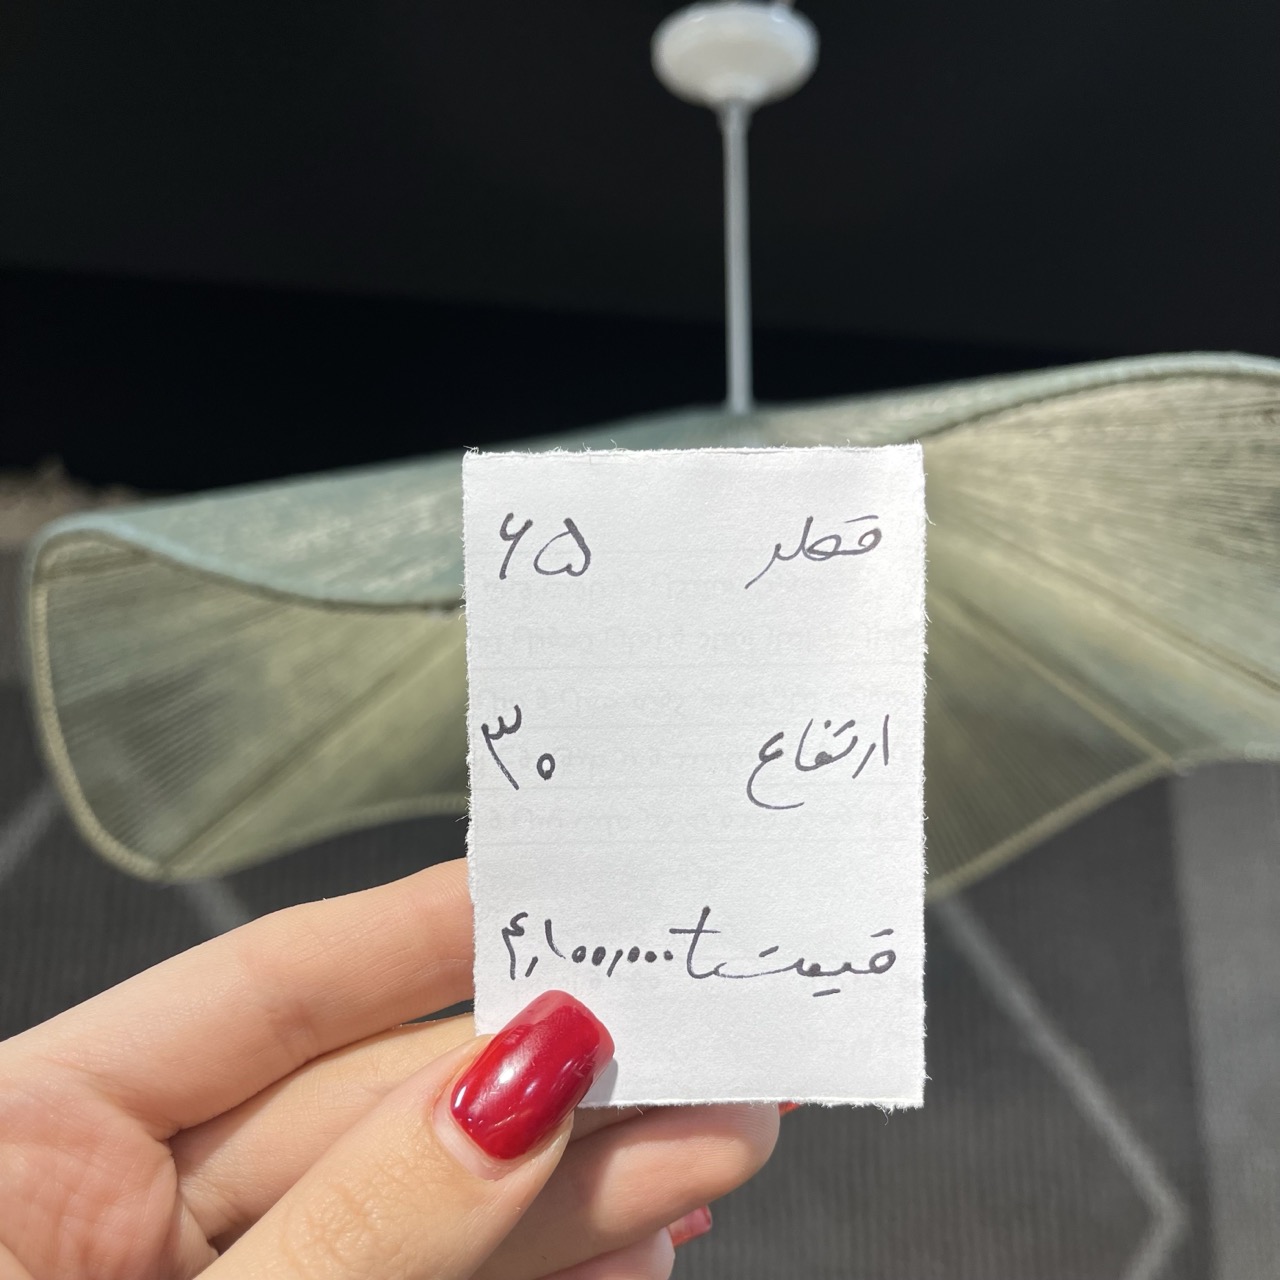 قطر ۶۵
ارتفاع ۳۰
قیمت ۴,۱۰۰,۰۰۰ t